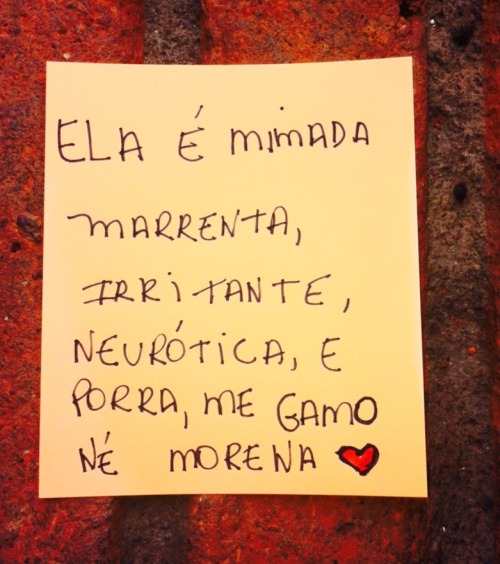 ELA É MIMADA
MARRENTA,
IRRITANTE,
NEURÓTICA, E
PORRA, ME GAMO
NÉ MORENA